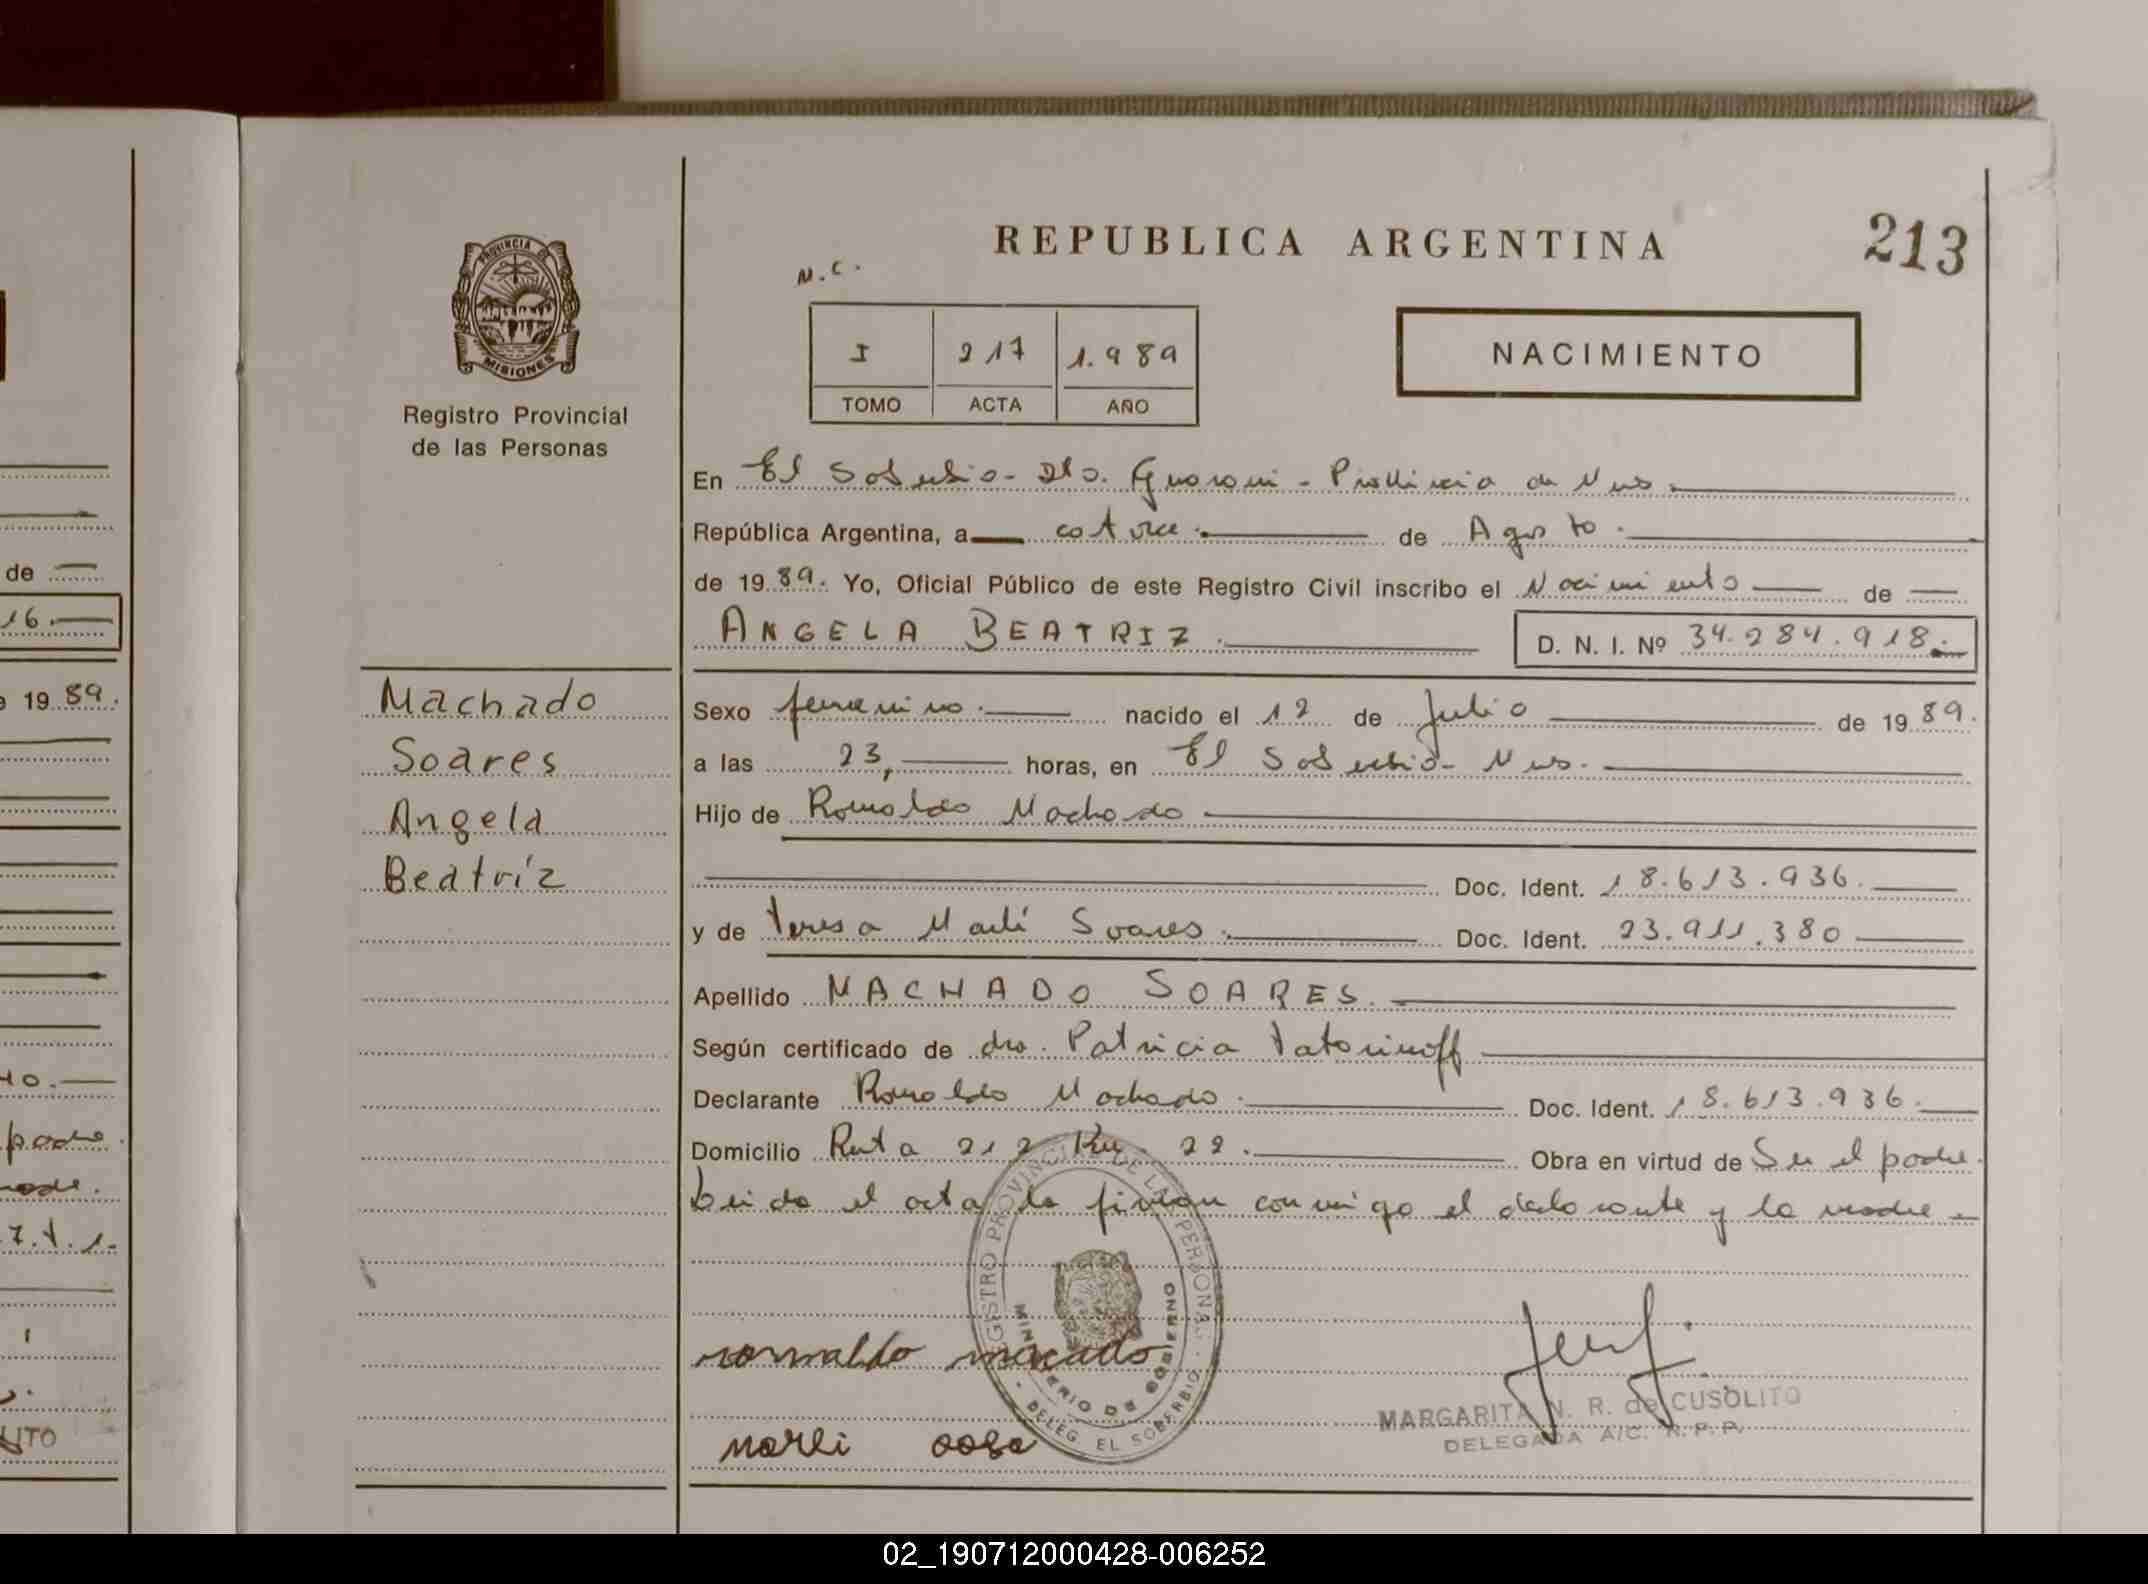 REPUBLICA ARGENTINA
213
N.C.
I 217 1.989
TOMO ACTA AÑO
NACIMIENTO
PROVINCIA
MISIONES
Registro Provincial
de las Personas
En El Soberbio - Dto. Guarani - Provincia de Mnes.
República Argentina, a catorce. de Agosto.
de 1989. Yo, Oficial Público de este Registro Civil inscribo el Nacimiento de
ANGELA BEATRIZ. D. N. I. Nº 34.284.918.
Machado
Soares
Angela
Beatríz
Sexo femenino. nacido el 12 de Julio de 1989.
a las 23, horas, en El Soberbio - Mnes.
Hijo de Romaldo Machado
Doc. Ident. 18.613.936.
y de Teresa Marlí Soares. Doc. Ident. 23.911.380
Apellido MACHADO SOARES.
Según certificado de dra. Patricia
Declarante Romaldo Machado. Doc. Ident. 18.613.936.
Domicilio Ruta 212 Km 22. Obra en virtud de Ser el padre.
Leida el acta la firman conmigo el declarante y la madre -
REGISTRO PROVINCIAL DE LAS PERSONAS - DELEG. EL SOBERBIO -
MINISTERIO DE GOBIERNO
romaldo macado
marli
MARGARITA N. R. de CUSOLITO
DELEGADA A/C. R. P. P.
de
16.
19 89.
40.
padre.
madre.
7.t.1.
LITO
02_190712000428-006252